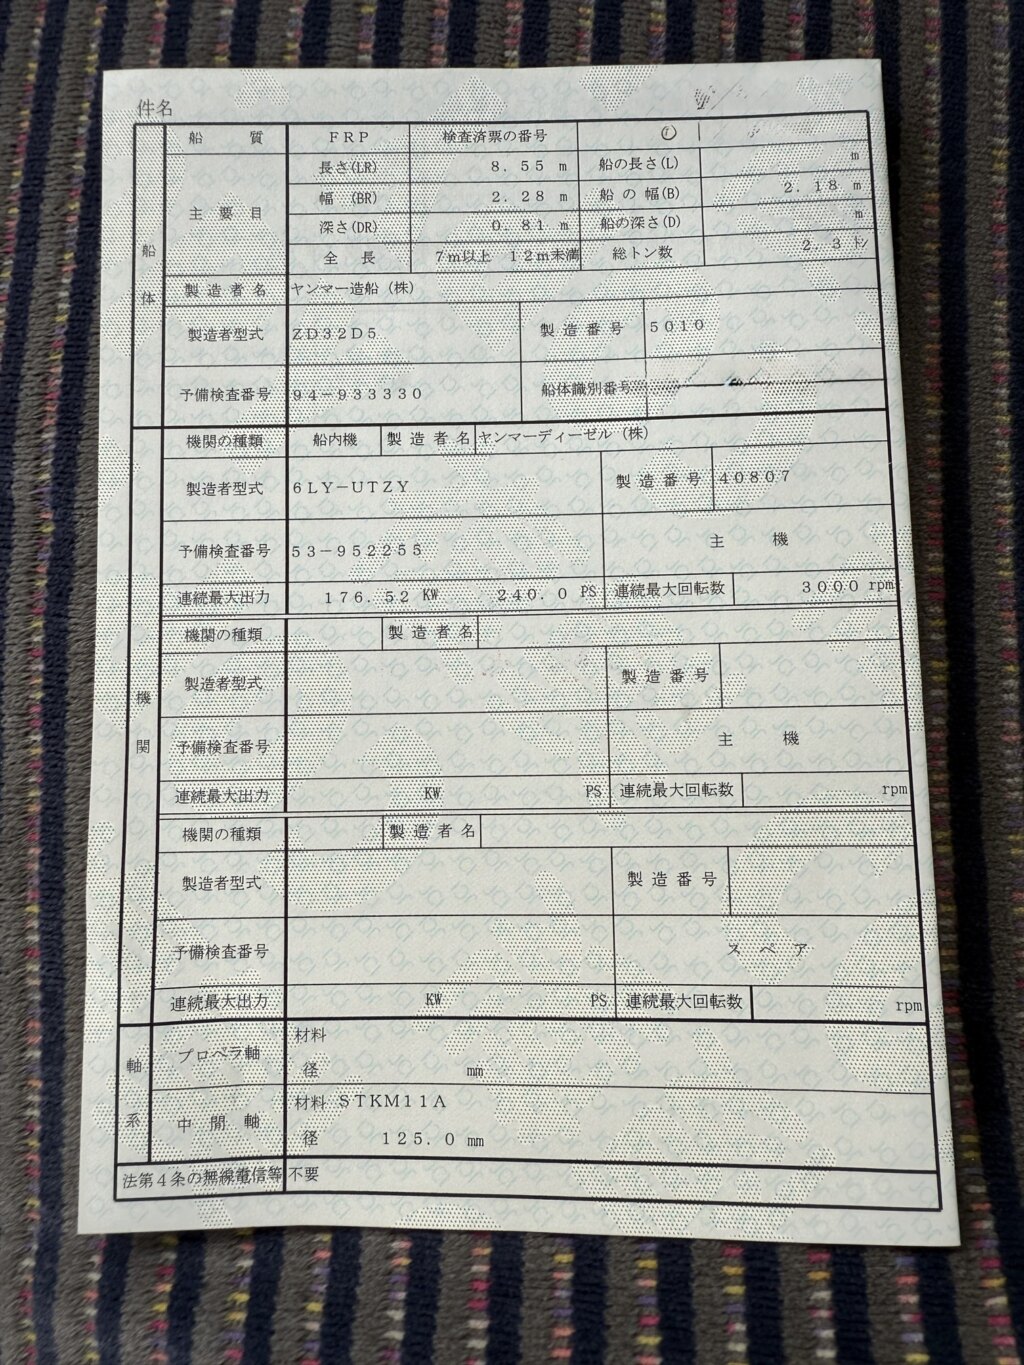 件名
船体
船質 FRP 検査済票の番号 ①
主要目 長さ(LR) 8.55 m 船の長さ(L) m
幅 (BR) 2.28 m 船の幅(B) 2.18 m
深さ(DR) 0.81 m 船の深さ(D) m
全長 7m以上 12m未満 総トン数 2.3 トン
製造者名 ヤンマー造船(株)
製造者型式 ZD32D5 製造番号 5010
予備検査番号 94-933330 船体識別番号
機関
機関の種類 船内機 製造者名 ヤンマーディーゼル(株)
製造者型式 6LY-UTZY 製造番号 40807
予備検査番号 53-952255 主機
連続最大出力 176.52 KW 240.0 PS 連続最大回転数 3000 rpm
機関の種類 製造者名
製造者型式 製造番号
予備検査番号 主機
連続最大出力 KW PS 連続最大回転数 rpm
機関の種類 製造者名
製造者型式 製造番号
予備検査番号 スペア
連続最大出力 KW PS 連続最大回転数 rpm
軸系
プロペラ軸 材料
径 mm
中間軸 材料 STKM11A
径 125.0 mm
法第4条の無線電信等 不要